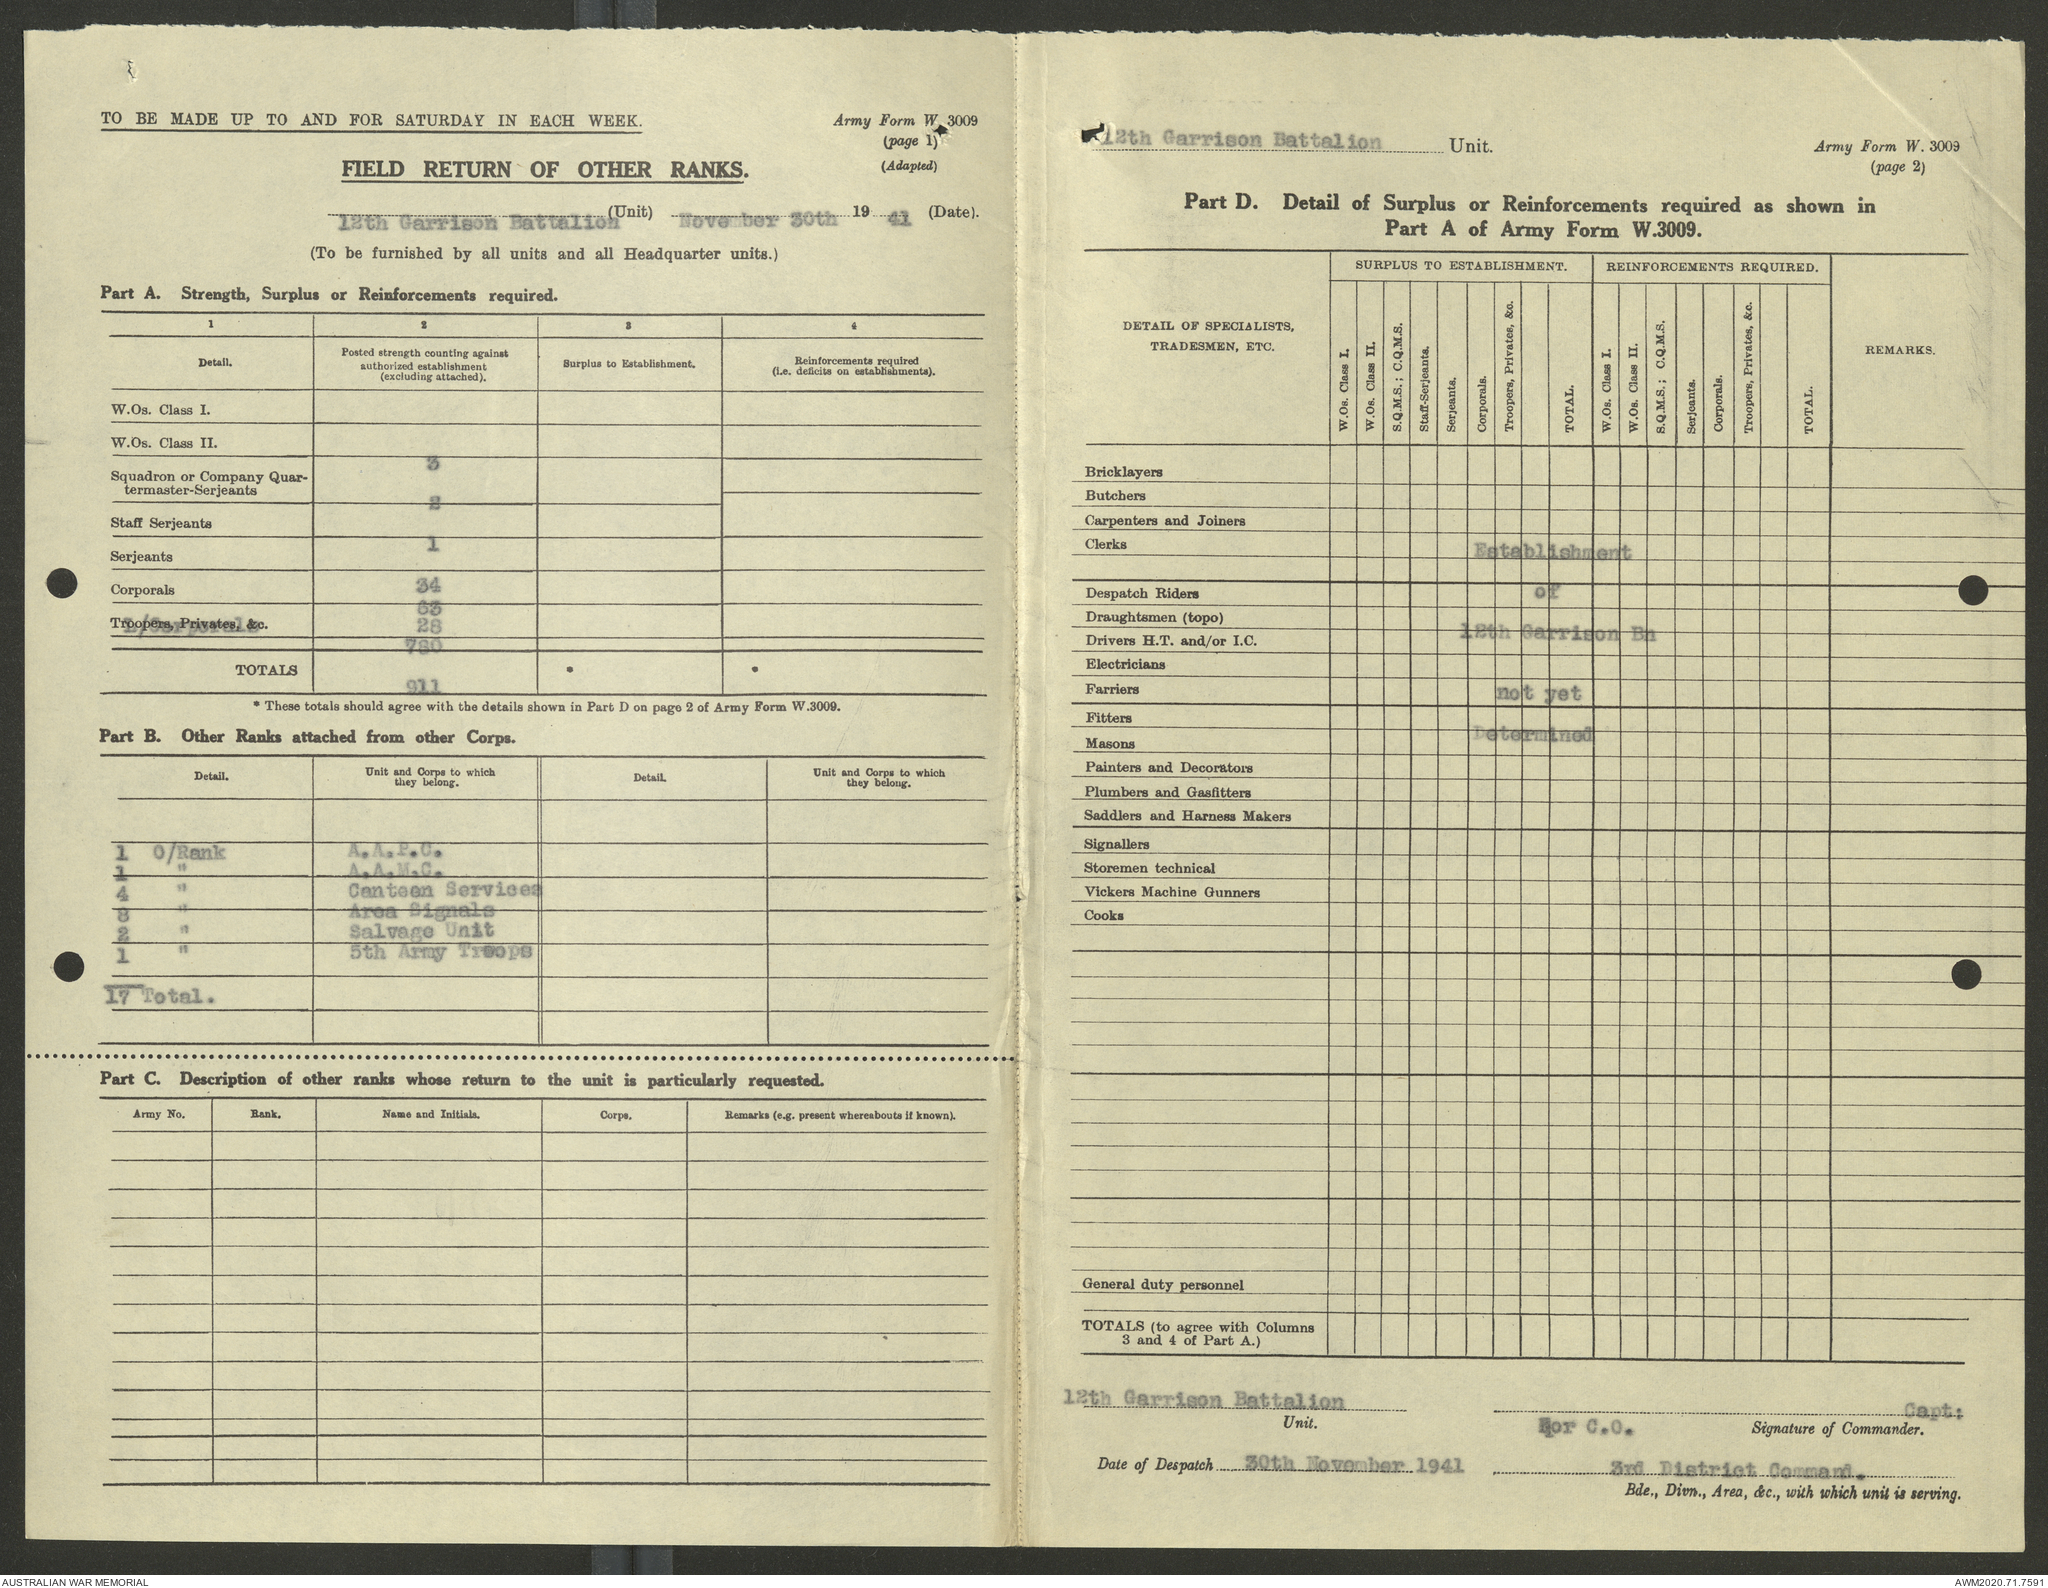 TO BE MADE UP TO AND FOR SATURDAY IN EACH WEEK.
Army Form W. 3009
(page 1)
(Adapted)
FIELD RETURN OF OTHER RANKS.
12th Garrison Battalion (Unit) November 30th 19 41 (Date).
(To be furnished by all units and all Headquarter units.)
Part A. Strength, Surplus or Reinforcements required.
1 2 3 4
Detail. Posted strength counting against authorized establishment (excluding attached). Surplus to Establishment. Reinforcements required (i.e. deficits on establishments).
W.Os. Class I.
W.Os. Class II.
3
Squadron or Company Quar-
termaster-Serjeants
2
Staff Serjeants
1
Serjeants
34
Corporals
63
Troopers, Privates, &c.
L/Corporals 28
780
TOTALS * *
911
* These totals should agree with the details shown in Part D on page 2 of Army Form W.3009.
Part B. Other Ranks attached from other Corps.
Detail. Unit and Corps to which they belong. Detail. Unit and Corps to which they belong.
1 O/Rank A.A.P.C.
1 " A.A.M.C.
4 " Canteen Services
8 " Area Signals
2 " Salvage Unit
1 " 5th Army Troops
17 Total.
Part C. Description of other ranks whose return to the unit is particularly requested.
Army No. Rank. Name and Initials. Corps. Remarks (e.g. present whereabouts if known).
12th Garrison Battalion Unit.
Army Form W. 3009
(page 2)
Part D. Detail of Surplus or Reinforcements required as shown in
Part A of Army Form W.3009.
SURPLUS TO ESTABLISHMENT. REINFORCEMENTS REQUIRED.
DETAIL OF SPECIALISTS,
TRADESMEN, ETC.
W.Os. Class I.
W.Os. Class II.
S.Q.M.S.; C.Q.M.S.
Staff-Serjeants.
Serjeants.
Corporals.
Troopers, Privates, &c.
TOTAL.
W.Os. Class I.
W.Os. Class II.
S.Q.M.S.; C.Q.M.S.
Serjeants.
Corporals.
Troopers, Privates, &c.
TOTAL.
REMARKS.
Bricklayers
Butchers
Carpenters and Joiners
Clerks
Establishment
Despatch Riders
of
Draughtsmen (topo)
12th Garrison Bn
Drivers H.T. and/or I.C.
Electricians
Farriers
not yet
Fitters
Determined
Masons
Painters and Decorators
Plumbers and Gasfitters
Saddlers and Harness Makers
Signallers
Storemen technical
Vickers Machine Gunners
Cooks
General duty personnel
TOTALS (to agree with Columns
3 and 4 of Part A.)
12th Garrison Battalion
Unit.
Capt:
For C.O. Signature of Commander.
Date of Despatch 30th November 1941
3rd District Command.
Bde., Divn., Area, &c., with which unit is serving.
AUSTRALIAN WAR MEMORIAL
AWM2020.71.7591